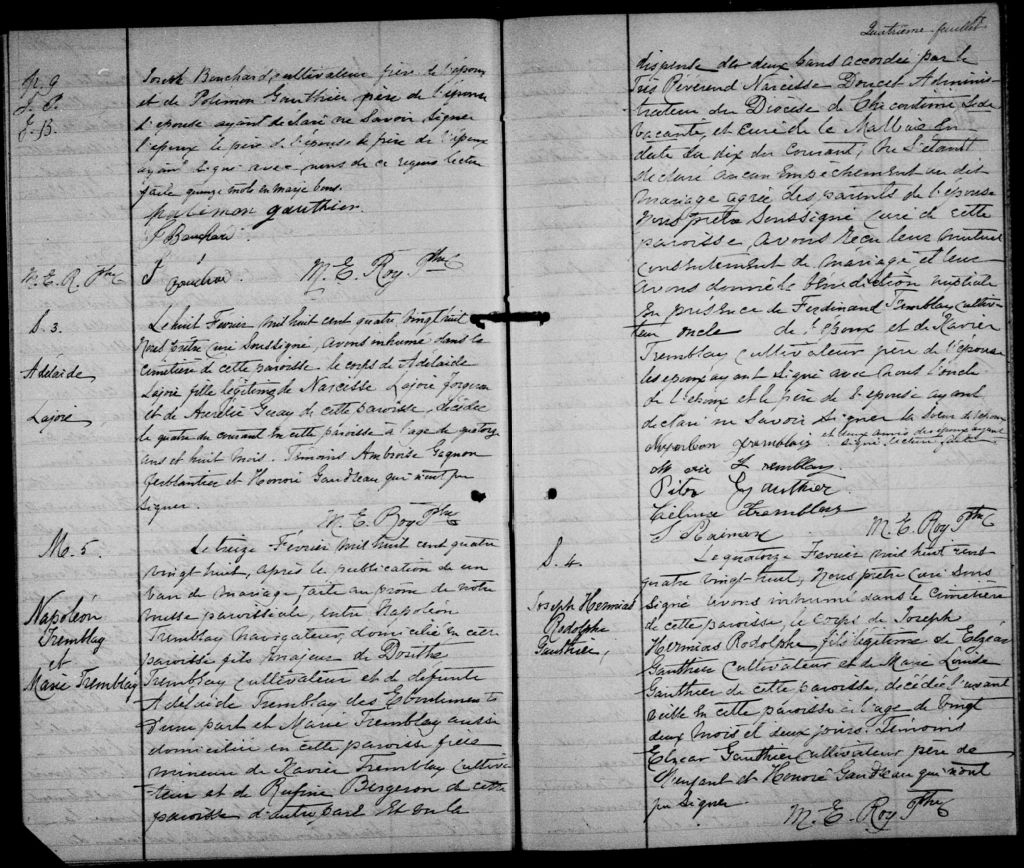 P. G.
J. B.
J. B.
Joseph Bouchard, cultivateur frère de l'époux
et de Polémon Gauthier père de l'épouse
l'épouse ayant déclaré ne savoir signer
l'époux le père de l'épouse le frère de l'époux
ayant signé avec nous de ce requis lecture
faite quinze mots en marge bons.
palémon gauthier
J Bouchard
M. E. R. Ptre
J Bouchard. M. E. Roy Ptre
S. 3.
Adelaide
Lajoie
Le huit Février mil huit cent quatre vingt huit
Nous prêtre curé soussigné, avons inhumé dans le
cimetière de cette paroisse le corps de Adelaide
Lajoie fille légitime de Narcisse Lajoie forgeron
et de Aurélie Guay de cette paroisse, décédée
le quatre du courant en cette paroisse à l'age de quatorze
ans et huit mois. Témoins Ambroise Gagnon
ferblantier et Honoré Gaudreau qui n'ont pu
signer.
M. E. Roy Ptre
M. 5.
Napoléon
Tremblay
et
Marie Tremblay
Le treize Février mil huit cent quatre
vingt huit, après la publication de un
ban de mariage faite au prône de notre
messe paroissiale, entre Napoléon
Tremblay navigateur, domicilié en cette
paroisse fils majeur de Dosithé
Tremblay cultivateur et de défunte
Adelaide Tremblay des Eboulements
d'une part et Marie Tremblay aussi
domiciliée en cette paroisse fille
mineure de Xavier Tremblay cultiva-
teur et de Rufine Bergeron de cette
paroisse d'autre part Et vu la
Quatrième feuillet
dispense de deux bans accordée par le
Très Révérend Narcisse Doucet Adminis-
trateur du Diocèse de Chicoutimi, Sede
Vacante, et curé de la Malbaie en
date du dix du courant, ne s'étant
déclaré aucun empêchement au dit
mariage agréé des parents de l'épouse
Nous prêtre soussigné curé de cette
paroisse, avons reçu leur mutuel
consentement de mariage et leur
avons donné la bénédiction nuptiale
en présence de Ferdinand Tremblay cultiva-
teur oncle de l'époux et de Xavier
Tremblay cultivateur père de l'épouse
les époux ayant signé avec nous l'oncle
de l'époux et le père de l'épouse ayant
déclaré ne savoir signer la soeur de l'époux
et deux amis des époux ayant
signé, lecture faite
Napoléon Tremblay
Marie Tremblay
Pitre Gauthier
Célina Tremblay
M. E. Roy Ptre
S. 4.
Joseph Hermias
Rodolphe
Gauthier,
Le quatorze Février mil huit cent
quatre vingt huit, Nous prêtre curé sous
signé avons inhumé dans le cimetière
de cette paroisse, le corps de Joseph
Hermias Rodolphe, fils légitime de Elzéar
Gauthier cultivateur et de Marie Louise
Gauthier de cette paroisse, décédé l'avant
veille en cette paroisse à l'age de vingt
deux mois et deux jours. Témoins
Elzéar Gauthier cultivateur père de
l'enfant et Honoré Gaudreau qui n'ont
pu signer.
M. E. Roy Ptre